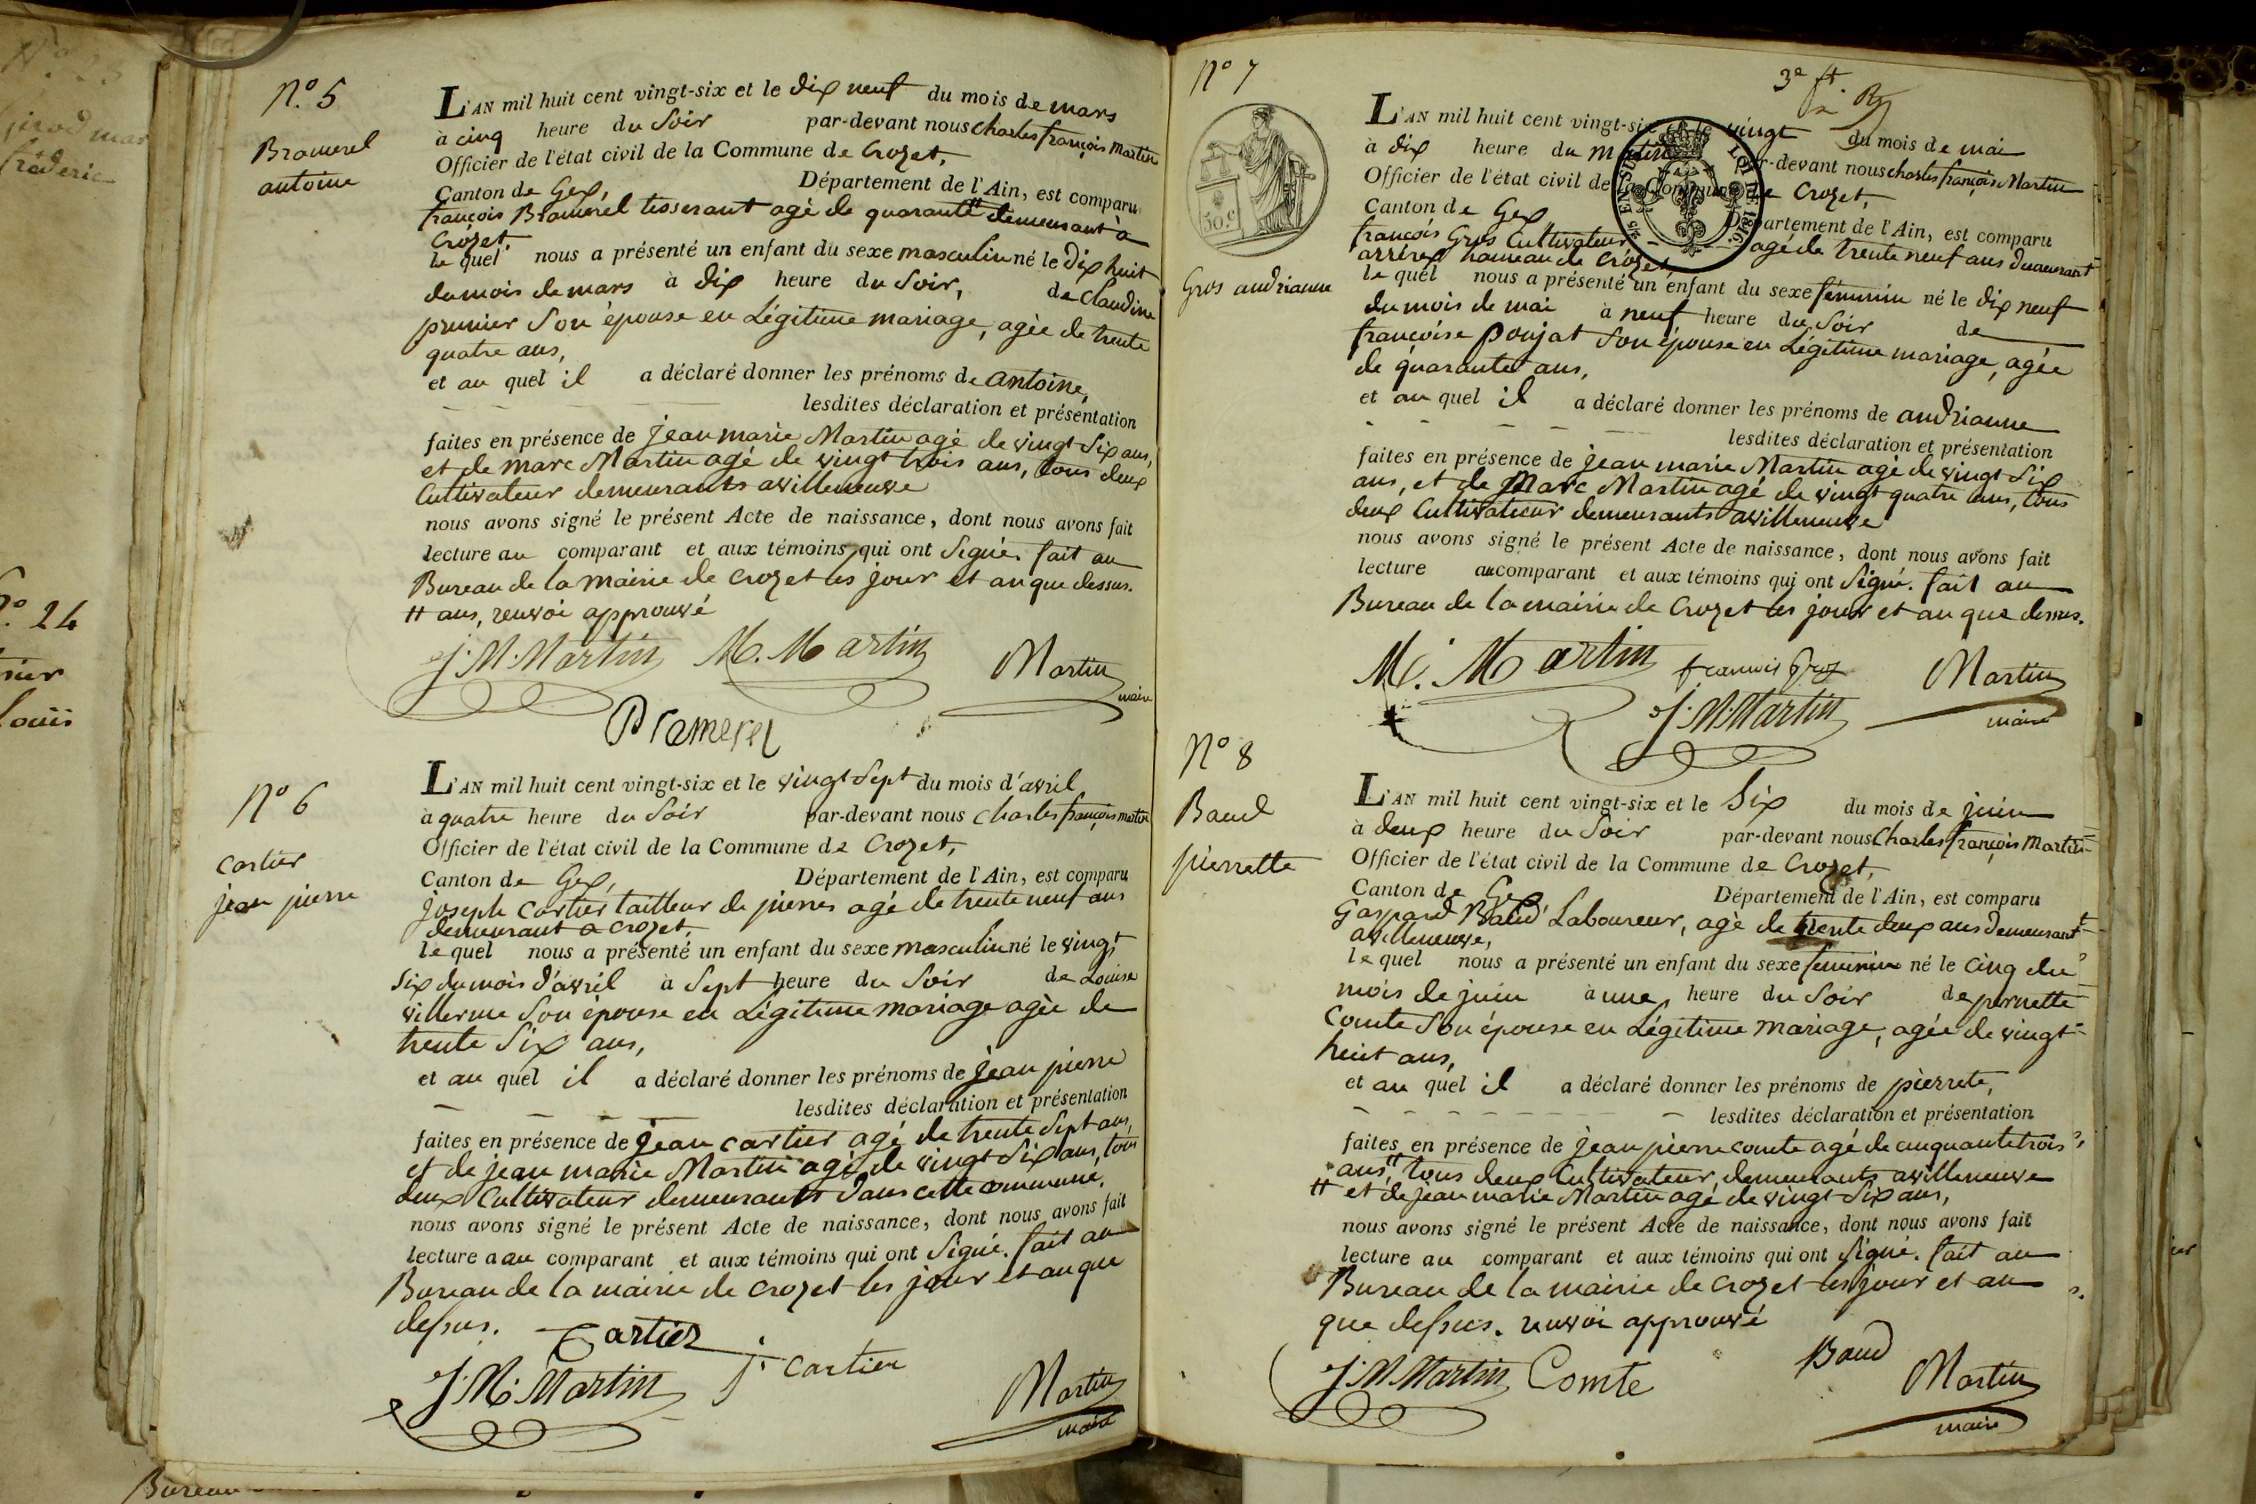 N.° 5
Bramerel
antoine
L'AN mil huit cent vingt-six et le dix neuf du mois de mars
à cinq heure du Soir par-devant nous charles françois Martin
Officier de l'état civil de la Commune de Crozet,
Canton de Gex, Département de l'Ain, est comparu
françois Bramerel tisserant agé de quarante # demeurant à
Crozet.
le quel nous a présenté un enfant du sexe masculin né le dix huit
du mois de mars à dix heure du Soir, de Claudine
prunier Son épouse en Légitime mariage, agèe de trente
quatre ans,
et au quel il a déclaré donner les prénoms de antoine,
lesdites déclaration et présentation
faites en présence de jean marie Martin agé de vingt Six ans,
et de marc Martin agé de vingt trois ans, tous deux
Cultivateur demeurants avilleneuve
nous avons signé le présent Acte de naissance, dont nous avons fait
lecture au comparant et aux témoins qui ont Signé. fait au
Bureau de la mairie de Crozet les jour et an que dessus.
# ans, renvoi approuvé
J. M. Martin M. Martin Martin
maire
Bramerel
N° 6
Cartier
jean pierre
L'AN mil huit cent vingt-six et le vingt Sept du mois d'avril
à quatre heure du Soir par-devant nous Charles françois martin
Officier de l'état civil de la Commune de Crozet,
Canton de Gex, Département de l'Ain, est comparu
joseph Cartier tailleur de pierres agé de trente neuf ans
demeurant a Crozet,
le quel nous a présenté un enfant du sexe masculin né le vingt
Six du mois d'avril à Sept heure du Soir de Louise
villerme Son épouse en Légitime mariage agèe de
trente Six ans,
et au quel il a déclaré donner les prénoms de jean pierre
lesdites déclaration et présentation
faites en présence de jean cartier agé de trente Sept ans,
et de jean marie Martin agé de vingt Six ans, tous
deux Cultivateur demeurants dans cette commune,
nous avons signé le présent Acte de naissance, dont nous avons fait
lecture a au comparant et aux témoins qui ont Signé. fait au
Bureau de la mairie de Crozet les jour et an que
dessus. Cartier
J. M. Martin j. cartier Martin
maire
N° 7
3e ft
50. c
Gros andrianne
L'AN mil huit cent vingt-six et le vingt du mois de mai
à dix heure du Matin par-devant nous charles françois Martin
Officier de l'état civil de la Commune de Crozet,
Canton de Gex Département de l'Ain, est comparu
françois Gros Cultivateur agé de trente neuf ans demeurant
hameau de Crozet,
le quel nous a présenté un enfant du sexe féminin né le dix neuf
du mois de mai à neuf heure du Soir de
françoise Poujat Son épouse en Légitime mariage, agée
de quarante ans,
et au quel il a déclaré donner les prénoms de andrianne
lesdites déclaration et présentation
faites en présence de jean marie Martin agé de vingt Six
ans, et de Marc Martin agé de vingt quatre ans, tous
deux Cultivateur demeurants avilleneuve
nous avons signé le présent Acte de naissance, dont nous avons fait
lecture au comparant et aux témoins qui ont Signé. fait au
Bureau de la mairie de Crozet les jour et an que dessus.
M. Martin francois Gros Martin
J. M. Martin maire
N° 8
Baud
pierrette
L'AN mil huit cent vingt-six et le Six du mois de juin
à deux heure du Soir par-devant nous Charles françois Martin
Officier de l'état civil de la Commune de Crozet,
Canton de Gex, Département de l'Ain, est comparu
Gaspard Baud Laboureur, agé de trente deux ans demeurant
avilleneuve,
le quel nous a présenté un enfant du sexe feminin né le Cinq du
mois de juin à une heure du Soir de pernette
Comte Son épouse en Légitime mariage, agée de vingt
huit ans,
et au quel il a déclaré donner les prénoms de pierrete,
lesdites déclaration et présentation
faites en présence de jean pierre comte agé de cinquante trois
ans, # tous deux Cultivateur, demeurants avilleneuve
# et de jean marie Martin agé de vingt Six ans,
nous avons signé le présent Acte de naissance, dont nous avons fait
lecture au comparant et aux témoins qui ont Signé. fait au
Bureau de la mairie de Crozet les jour et an
que dessus. renvoi approuvé
J. M. Martin Comte Baud Martin
maire